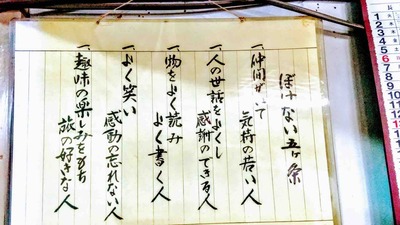 ぼけない五ヶ条
一、仲間がいて
気持の若い人
一、人の世話をよくし
感謝のできる人
一、物をよく読み
よく書く人
一、よく笑い
感動の忘れない人
一、趣味の楽しみをもち
旅の好きな人